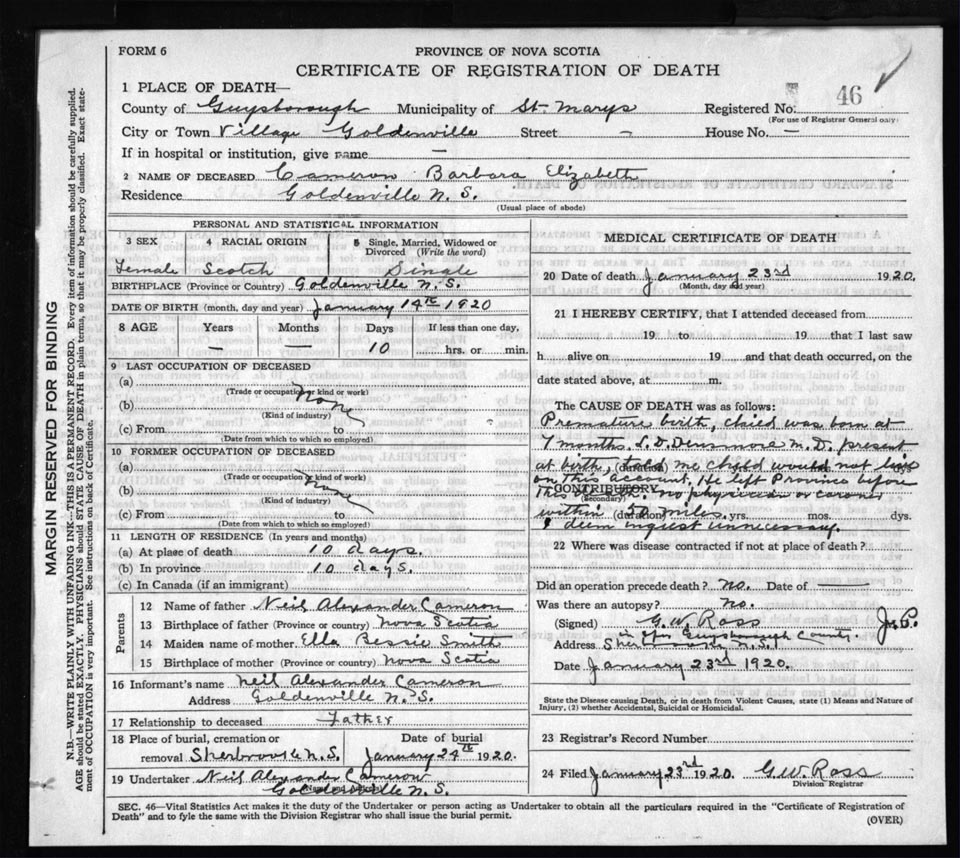 FORM 6
PROVINCE OF NOVA SCOTIA
CERTIFICATE OF REGISTRATION OF DEATH
1 PLACE OF DEATH—
County of Guysborough Municipality of St. Marys Registered No. 46
(For use of Registrar General only)
City or Town Village Goldenville Street – House No. –
If in hospital or institution, give name –
2 NAME OF DECEASED Cameron Barbara Elizabeth
Residence Goldenville N.S.
(Usual place of abode)
PERSONAL AND STATISTICAL INFORMATION
3 SEX 4 RACIAL ORIGIN 5 Single, Married, Widowed or Divorced (Write the word)
Female Scotch Single
BIRTHPLACE (Province or Country) Goldenville N.S.
DATE OF BIRTH (month, day and year) January 14th 1920
8 AGE Years Months Days If less than one day,
– – 10 hrs. or min.
9 LAST OCCUPATION OF DECEASED
(a)
(Trade or occupation or kind or work)
None
(b)
(Kind of industry)
(c) From to
(Date from which to which so employed)
10 FORMER OCCUPATION OF DECEASED
(a)
(Trade or occupation or kind of work)
None
(b)
(Kind of industry)
(c) From to
(Date from which to which so employed)
11 LENGTH OF RESIDENCE (In years and months)
(a) At place of death 10 days.
(b) In province 10 days.
(c) In Canada (if an immigrant)
Parents
12 Name of father Neil Alexander Cameron
13 Birthplace of father (Province or country) Nova Scotia
14 Maiden name of mother Ella Bessie Smith
15 Birthplace of mother (Province or country) Nova Scotia
16 Informant's name Neil Alexander Cameron
Address Goldenville N.S.
17 Relationship to deceased Father
18 Place of burial, cremation or removal Sherbrooke N.S. Date of burial January 24th 1920.
19 Undertaker Neil Alexander Cameron
Goldenville N.S.
MEDICAL CERTIFICATE OF DEATH
20 Date of death January 23rd 1920.
(Month, day and year)
21 I HEREBY CERTIFY, that I attended deceased from
19 to 19 that I last saw
h alive on 19 and that death occurred, on the
date stated above, at m.
The CAUSE OF DEATH was as follows:
Premature birth, child was born at
7 months. S.D. Densmore M.D. present
at birth, told me child would not live
(duration)
on this account. He left Province before
CONTRIBUTORY
(Secondary)
this date. no physician or coroner
within 50 miles.
(duration) yrs. mos. dys.
I deem inquest unnecessary.
22 Where was disease contracted if not at place of death?
Did an operation precede death? no. Date of –
Was there an autopsy? no.
(Signed) G.W. Ross J.P.
in & for Guysborough County.
Address Sherbrooke N.S.
Date January 23rd 1920.
State the Disease causing Death, or in death from Violent Causes, state (1) Means and Nature of
Injury, (2) whether Accidental, Suicidal or Homicidal.
23 Registrar's Record Number
24 Filed January 23rd 1920. G.W. Ross
Division Registrar
SEC. 46—Vital Statistics Act makes it the duty of the Undertaker or person acting as Undertaker to obtain all the particulars required in the "Certificate of Registration of
Death" and to fyle the same with the Division Registrar who shall issue the burial permit.
(OVER)
MARGIN RESERVED FOR BINDING
N.B.—WRITE PLAINLY WITH UNFADING INK—THIS IS A PERMANENT RECORD. Every item of information should be carefully supplied.
AGE should be stated EXACTLY. PHYSICIANS should STATE CAUSE OF DEATH in plain terms, so that it may be properly classified. Exact state-
ment of OCCUPATION is very important. See instructions on back of Certificate.